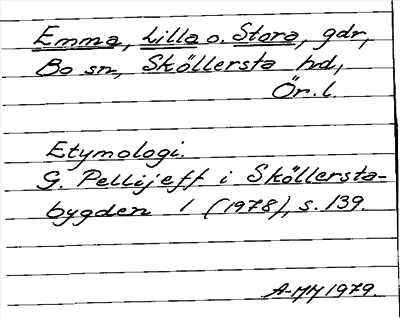 Emma, Lilla o. Stora, gdr,
Bo sn, Sköllersta hd,
Ör. l.
Etymologi.
G. Pellijeff i Sköllersta-
bygden 1 (1978), s. 139.
A-MM 1979.